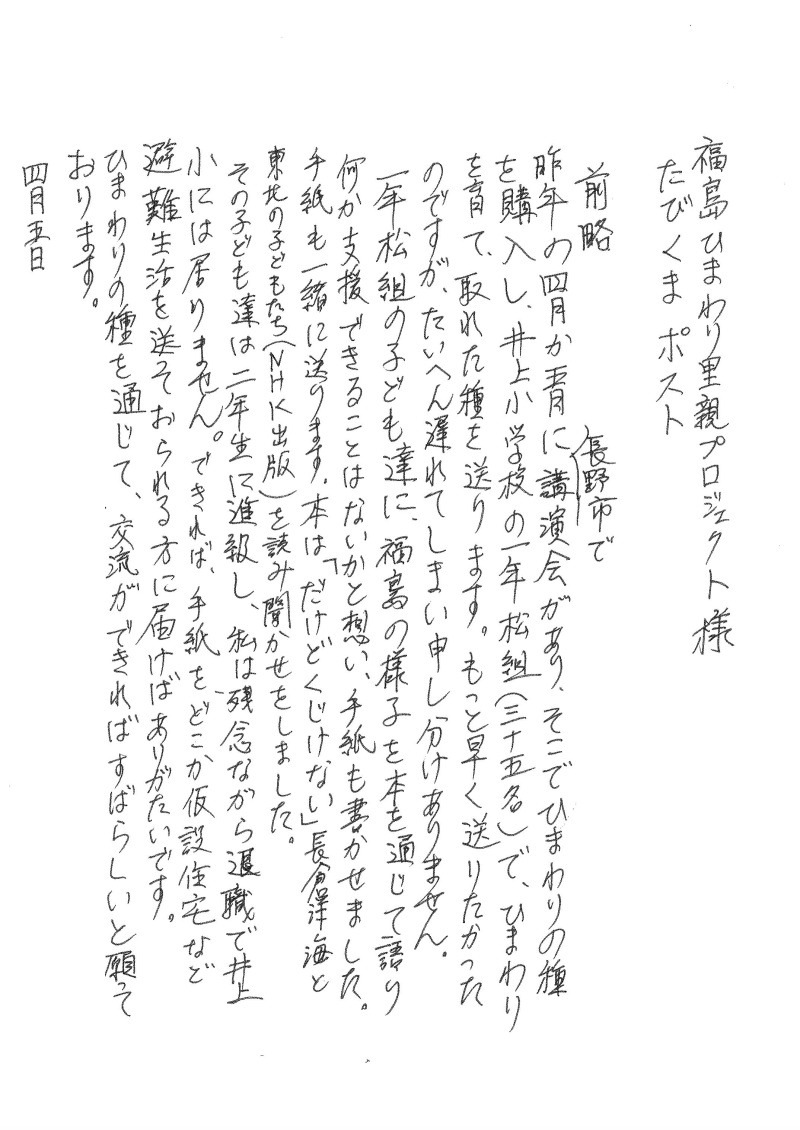 福島ひまわり里親プロジェクト様
たびくまポスト
前略
長野市で
昨年の四月か五月に講演会があり、そこでひまわりの種
を購入し、井上小学校の一年松組(三十五名)で、ひまわり
を育て、取れた種を送ります。もっと早く送りたかった
のですが、たいへん遅れてしまい申し分けありません。
一年松組の子ども達に、福島の様子を本を通じて語り
何か支援できることはないかと想い、手紙も書かせました。
手紙も一緒に送ります。本は、「だけどくじけない」長倉洋海と
東北の子どもたち(NHK出版)を読み聞かせをしました。
その子ども達は二年生に進級し、私は残念ながら退職で井上
小には居りません。できれば、手紙を、どこか仮設住宅など
避難生活を送っておられる方に届けばありがたいです。
ひまわりの種を通じて、交流ができればすばらしいと願って
おります。
四月五日